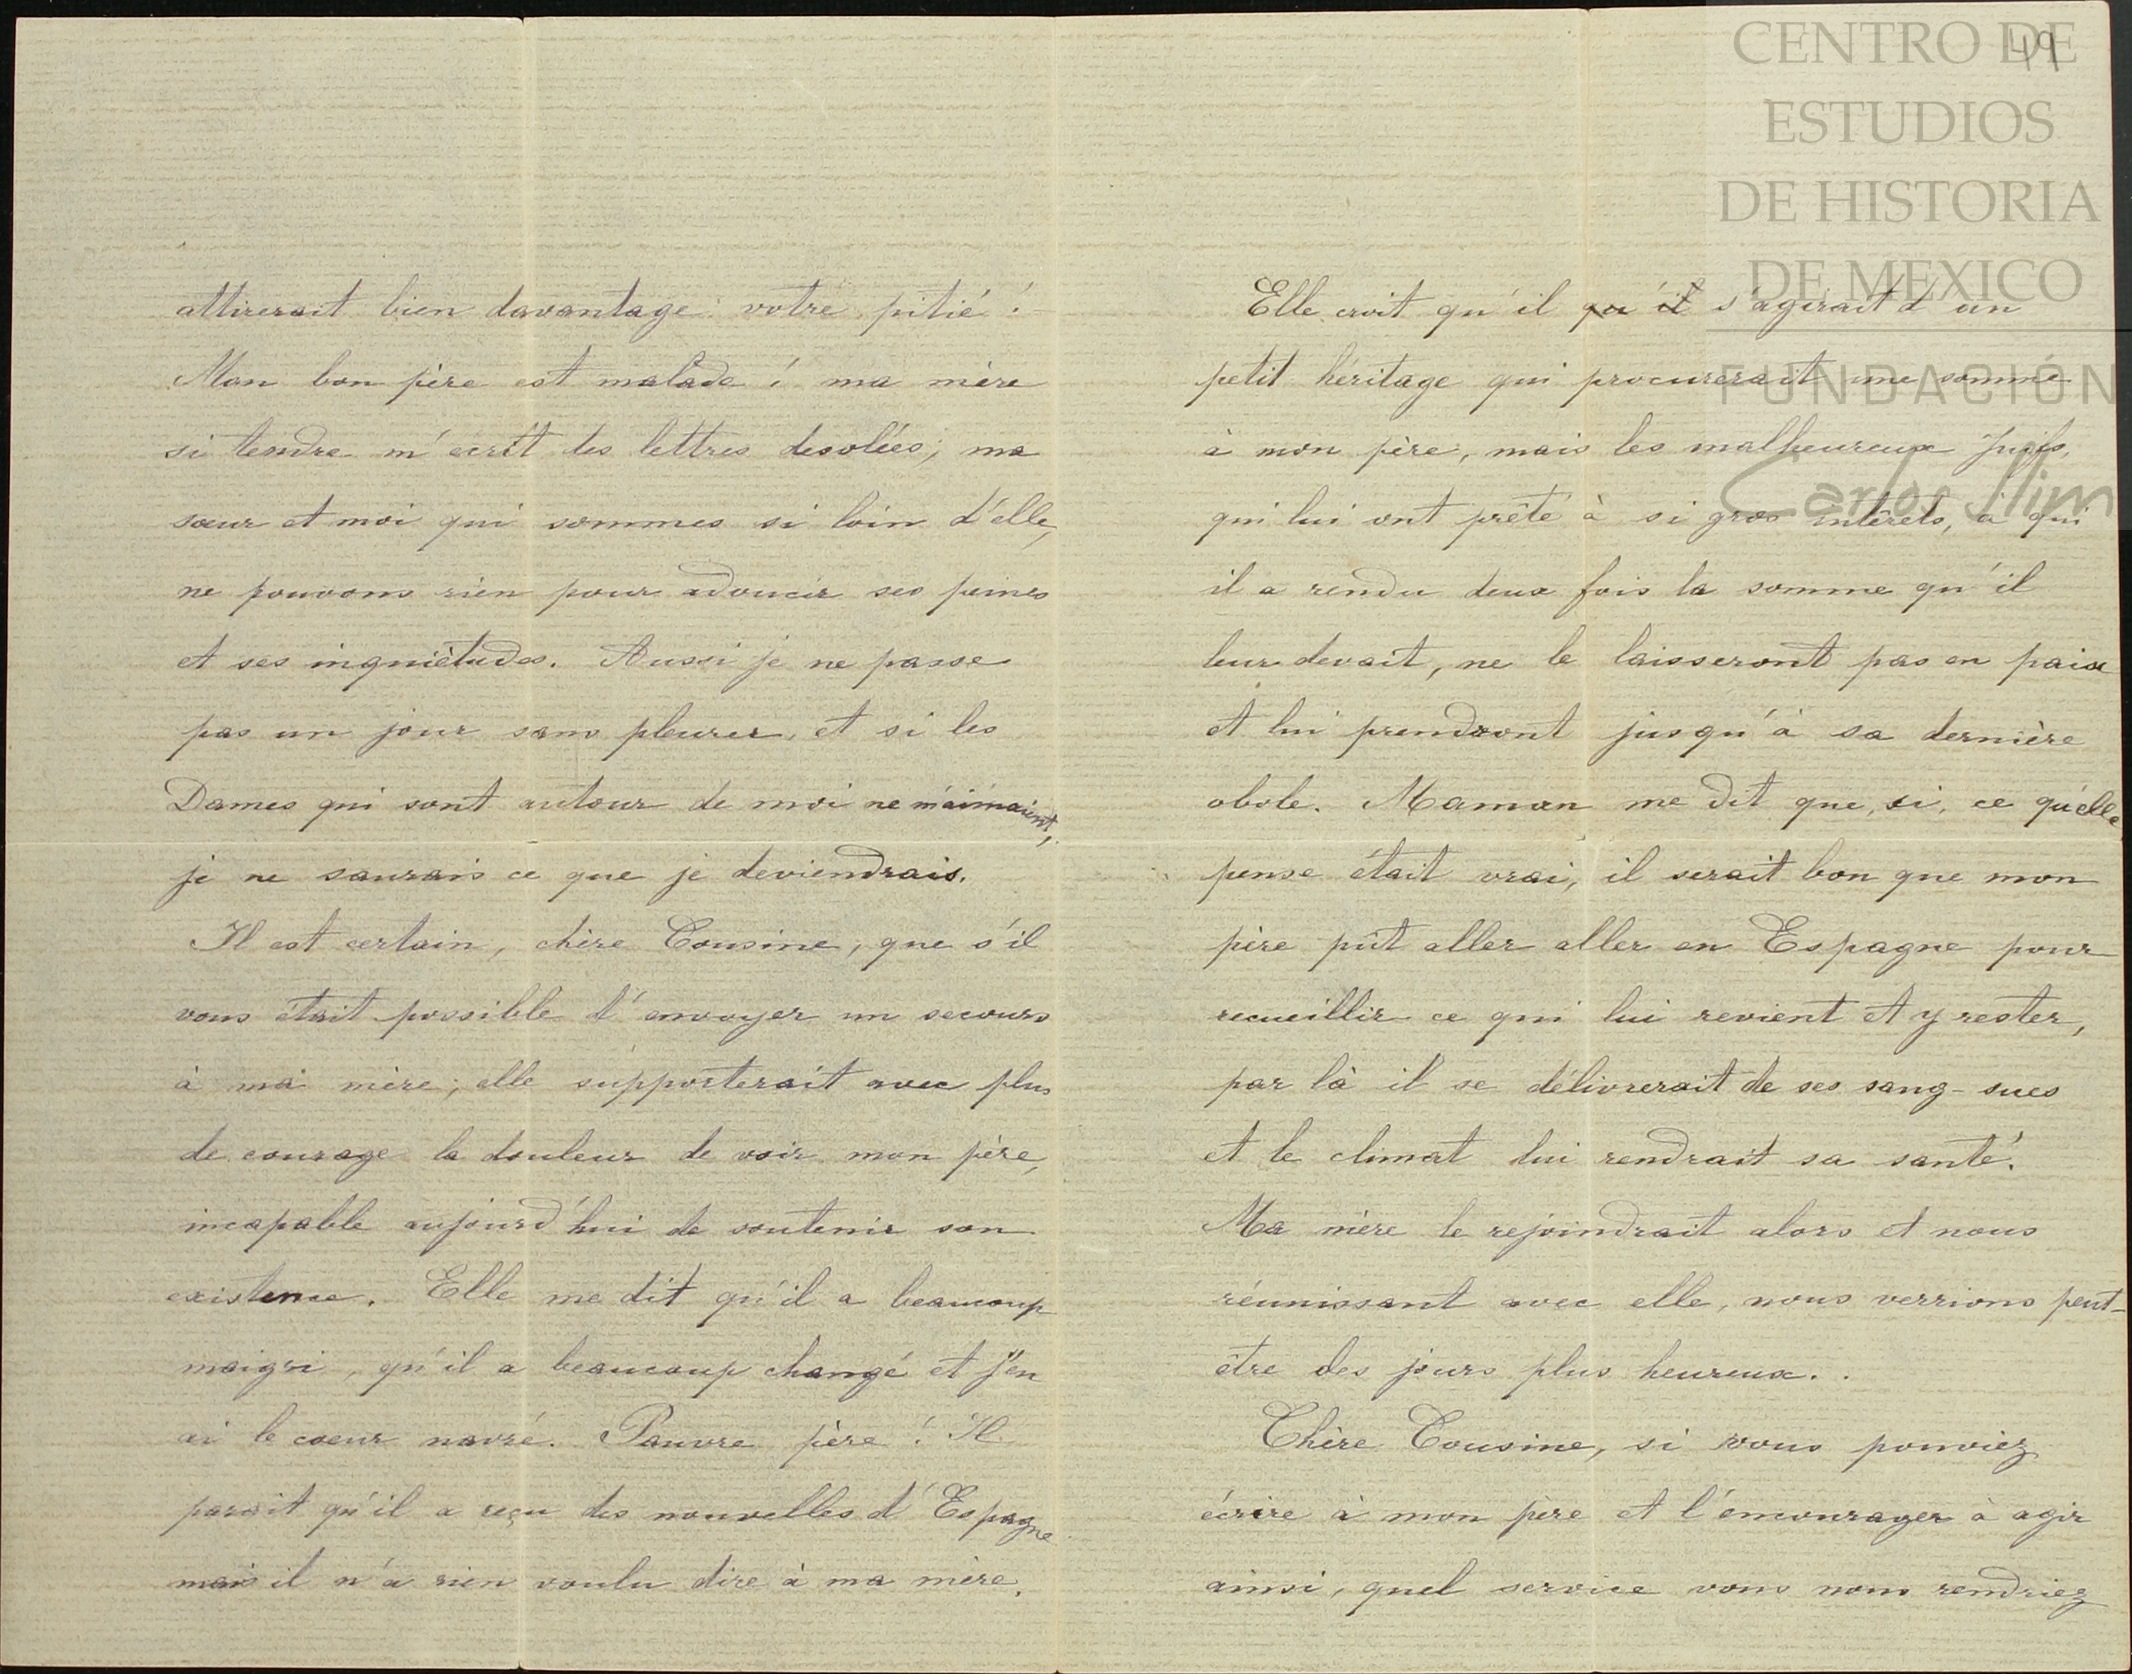 attirerait bien davantage votre pitié !
Mon bon père est malade ! ma mère
si tendre m'écrit des lettres desolées; ma
sœur et moi qui sommes si loin d'elle,
ne pouvons rien pour adoucir ses peines
et ses inquiètudes. Aussi je ne passe
pas un jour sans pleurer, et si les
Dames qui sont autour de moi ne m'aimaient,
je ne saurais ce que je deviendrais.
Il est certain, chère Cousine, que s'il
vous était possible d'envoyer un secours
à ma mère; elle supporterait avec plus
de courage la douleur de voir mon père,
incapable aujourd'hui de soutenir son
existence. Elle me dit qu'il a beaucoup
maigri, qu'il a beaucoup changé et j'en
ai le coeur navré. Pauvre père ! Il
parait qu'il a reçu des nouvelles d'Espagne
mais il n'a rien voulu dire à ma mère.
49
Elle croit qu'il qu'il s'agirait d'un
petit héritage qui procurerait une somme
à mon père, mais les malheureux Juifs,
qui lui ont prêté à si gros intêrets, à qui
il a rendu deux fois la somme qu'il
leur devait, ne le laisseront pas en paix
et lui prendront jusqu'à sa dernière
obole. Maman me dit que, si, ce qu'elle
pense était vrai, il serait bon que mon
père pût aller aller en Espagne pour
recueillir ce qui lui revient et y rester,
par là il se délivrerait de ses sang-sues
et le climat lui rendrait sa santé.
Ma mère le rejoindrait alors et nous
réunissant avec elle, nous verrions peut-
être des jours plus heureux.
Chère Cousine, si vous pouviez
écrire à mon père et l'encourager à agir
ainsi, quel service vous nous rendriez
CENTRO DE
ESTUDIOS
DE HISTORIA
DE MEXICO
FUNDACIÓN
Carlos Slim